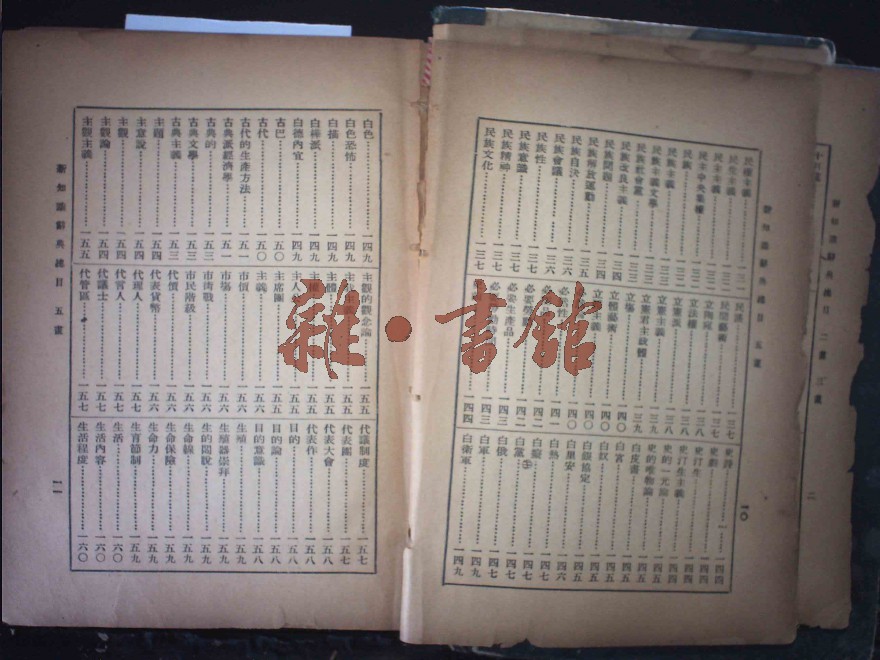 新知識辭典總目 二畫 三畫
二
新知識辭典總目 五畫
一〇
民權主義
民生主義
民主主義
民主中央集權
民族
民族主義
民族主義文學
民族社會黨
民族改良主義 一三四
民族問題 一三四
民族解放運動 一三五
民族自決 一三六
民族會議 一三六
民族性 一三七
民族意識 一三七
民族精神 一三七
民族文化 一三七
民謠 一三七
民間藝術 一三七
立陶宛 一三八
立法權 一三八
立憲派 一三八
立憲主義 一三九
立憲君主政體 一三九
立場 一四〇
立體藝術 一四〇
一四〇
一四〇
一四一
一四二
必要勞動 一四三
必要生產品 一四三
一四四
史詩 一四四
史劇 一四四
史汀生 一四四
史汀生主義 一四四
史的一元論 一四四
史的唯物論 一四五
白皮書 一四五
白宮 一四五
白奴 一四五
白銀協定 一四五
白里安 一四六
白熱 一四七
白黨 一四七
白俄 一四七
白軍 一四九
白衛軍 一四九
白色 一四九
白色恐怖 一四九
白描 一四九
白樺派 一四九
白德內宜 一四九
古巴 一五〇
古代 一五〇
古代的生產方法 一五一
古典派經濟學 一五一
古典的 一五三
古典文學 一五三
古典主義 一五三
主題 一五四
主意說 一五四
主觀 一五四
主觀論 一五四
主觀主義 一五五
主觀的觀念論 一五五
一五五
主體 一五五
主權 一五五
主人 一五五
主席團 一五五
主義 一五六
市價 一五六
市場 一五六
市街戰 一五六
市民階級 一五六
代價 一五六
代表貨幣 一五六
代理人 一五七
代言人 一五七
代議士 一五七
代管區 一五七
代議制度 一五七
代表團 一五七
代表大會 一五八
代表作 一五八
目的 一五八
目的論 一五八
目的意識 一五八
生殖 一五九
生殖器崇拜 一五九
生的鬩脫 一五九
生命線 一五九
生命保險 一五九
生命力 一五九
生育節制 一五九
生活 一六〇
生活內容 一六〇
生活程度 一六〇
新知識辭典總目 五畫
一一
雜·書館